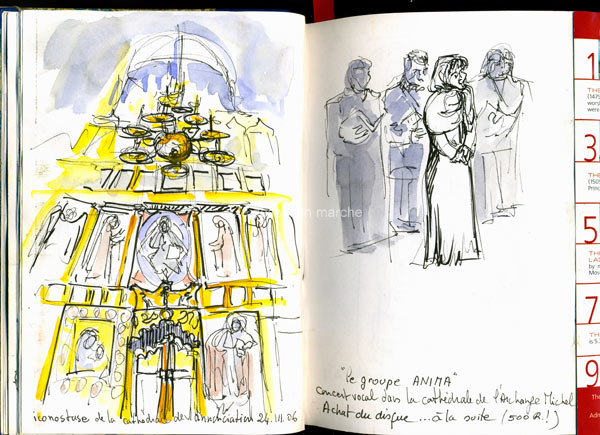 iconostase de la cathédrale de l'annonciation 24.VI.06
ri marche
"Le groupe ANIMA"
Concert vocal dans la cathédrale de l'Archange Michel
Achat du disque ... à la suite (500 R.!)
1
THE
(147
wors
were
3
THE
(150
Princ
5
THE
LA
by n
Mos
7
TH
is 5.2
9
the
Adm